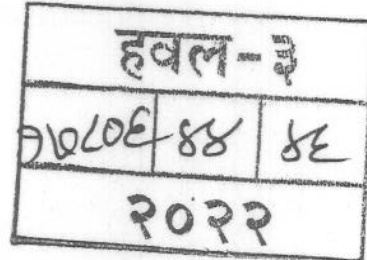 हवल-३
१७८०६ ४४ ४६
२०२२